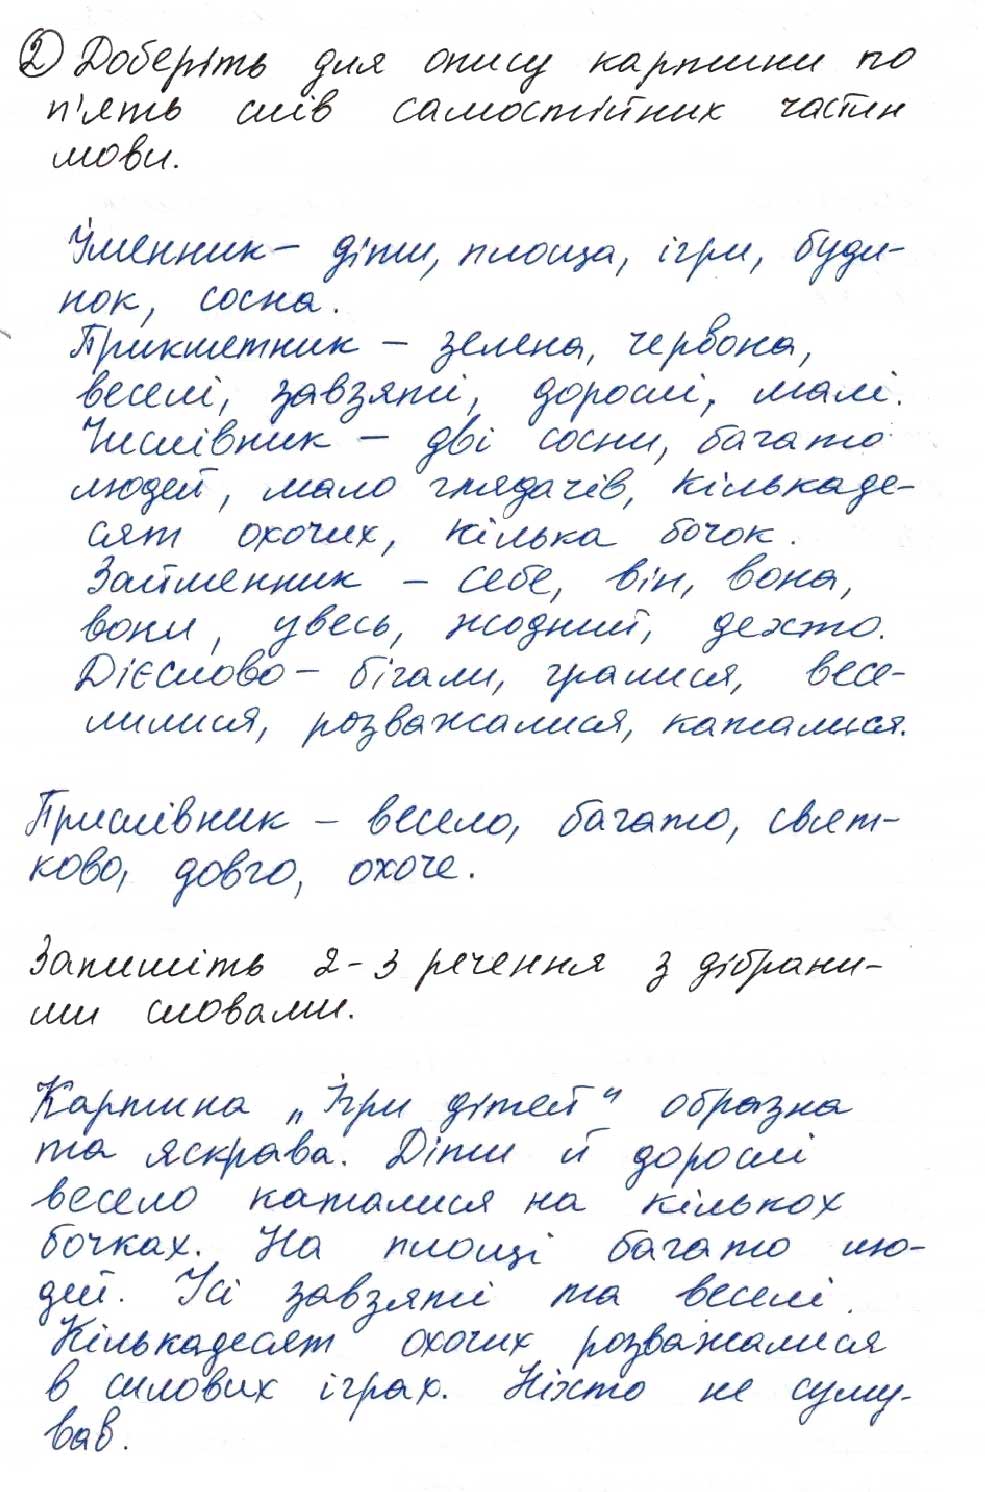 2 Доберіть для опису картини по
п'ять слів самостійних частин
мови.
Іменник – діти, площа, ігри, буди-
нок, сосна.
Прикметник – зелена, червона,
веселі, завзяті, дорослі, малі.
Числівник – дві сосни, багато
людей, мало глядачів, кількаде-
сят охочих, кілька бочок.
Займенник – себе, він, вона,
вони, увесь, жодний, дехто.
Дієслово – бігали, гралися, весе-
лилися, розважалися, каталися.
Прислівник – весело, багато, свят-
ково, довго, охоче.
Запишіть 2-3 речення з дібрани-
ми словами.
Картина „Ігри дітей" образна
та яскрава. Діти й дорослі
весело каталися на кількох
бочках. На площі багато лю-
дей. Усі завзяті та веселі.
Кількадесят охочих розважалися
в силових іграх. Ніхто не суму-
вав.